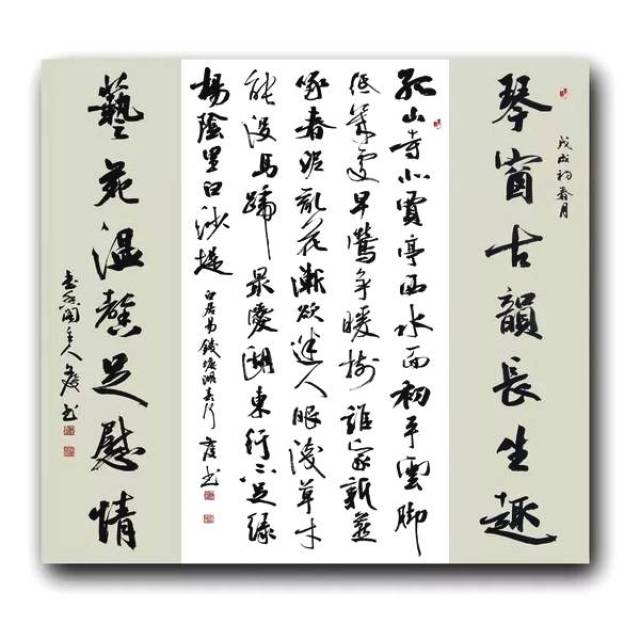 琴窗古韻長生趣
戊戌初春月
孤山寺北賈亭西水面初平雲腳
低幾處早鶯爭暖樹誰家新燕
啄春泥亂花漸欲迷人眼淺草才
能没馬蹄最愛湖東行不足綠
楊陰里白沙堤
白居易錢塘湖春行 书
藝苑溫馨足慰情
阁主人 书